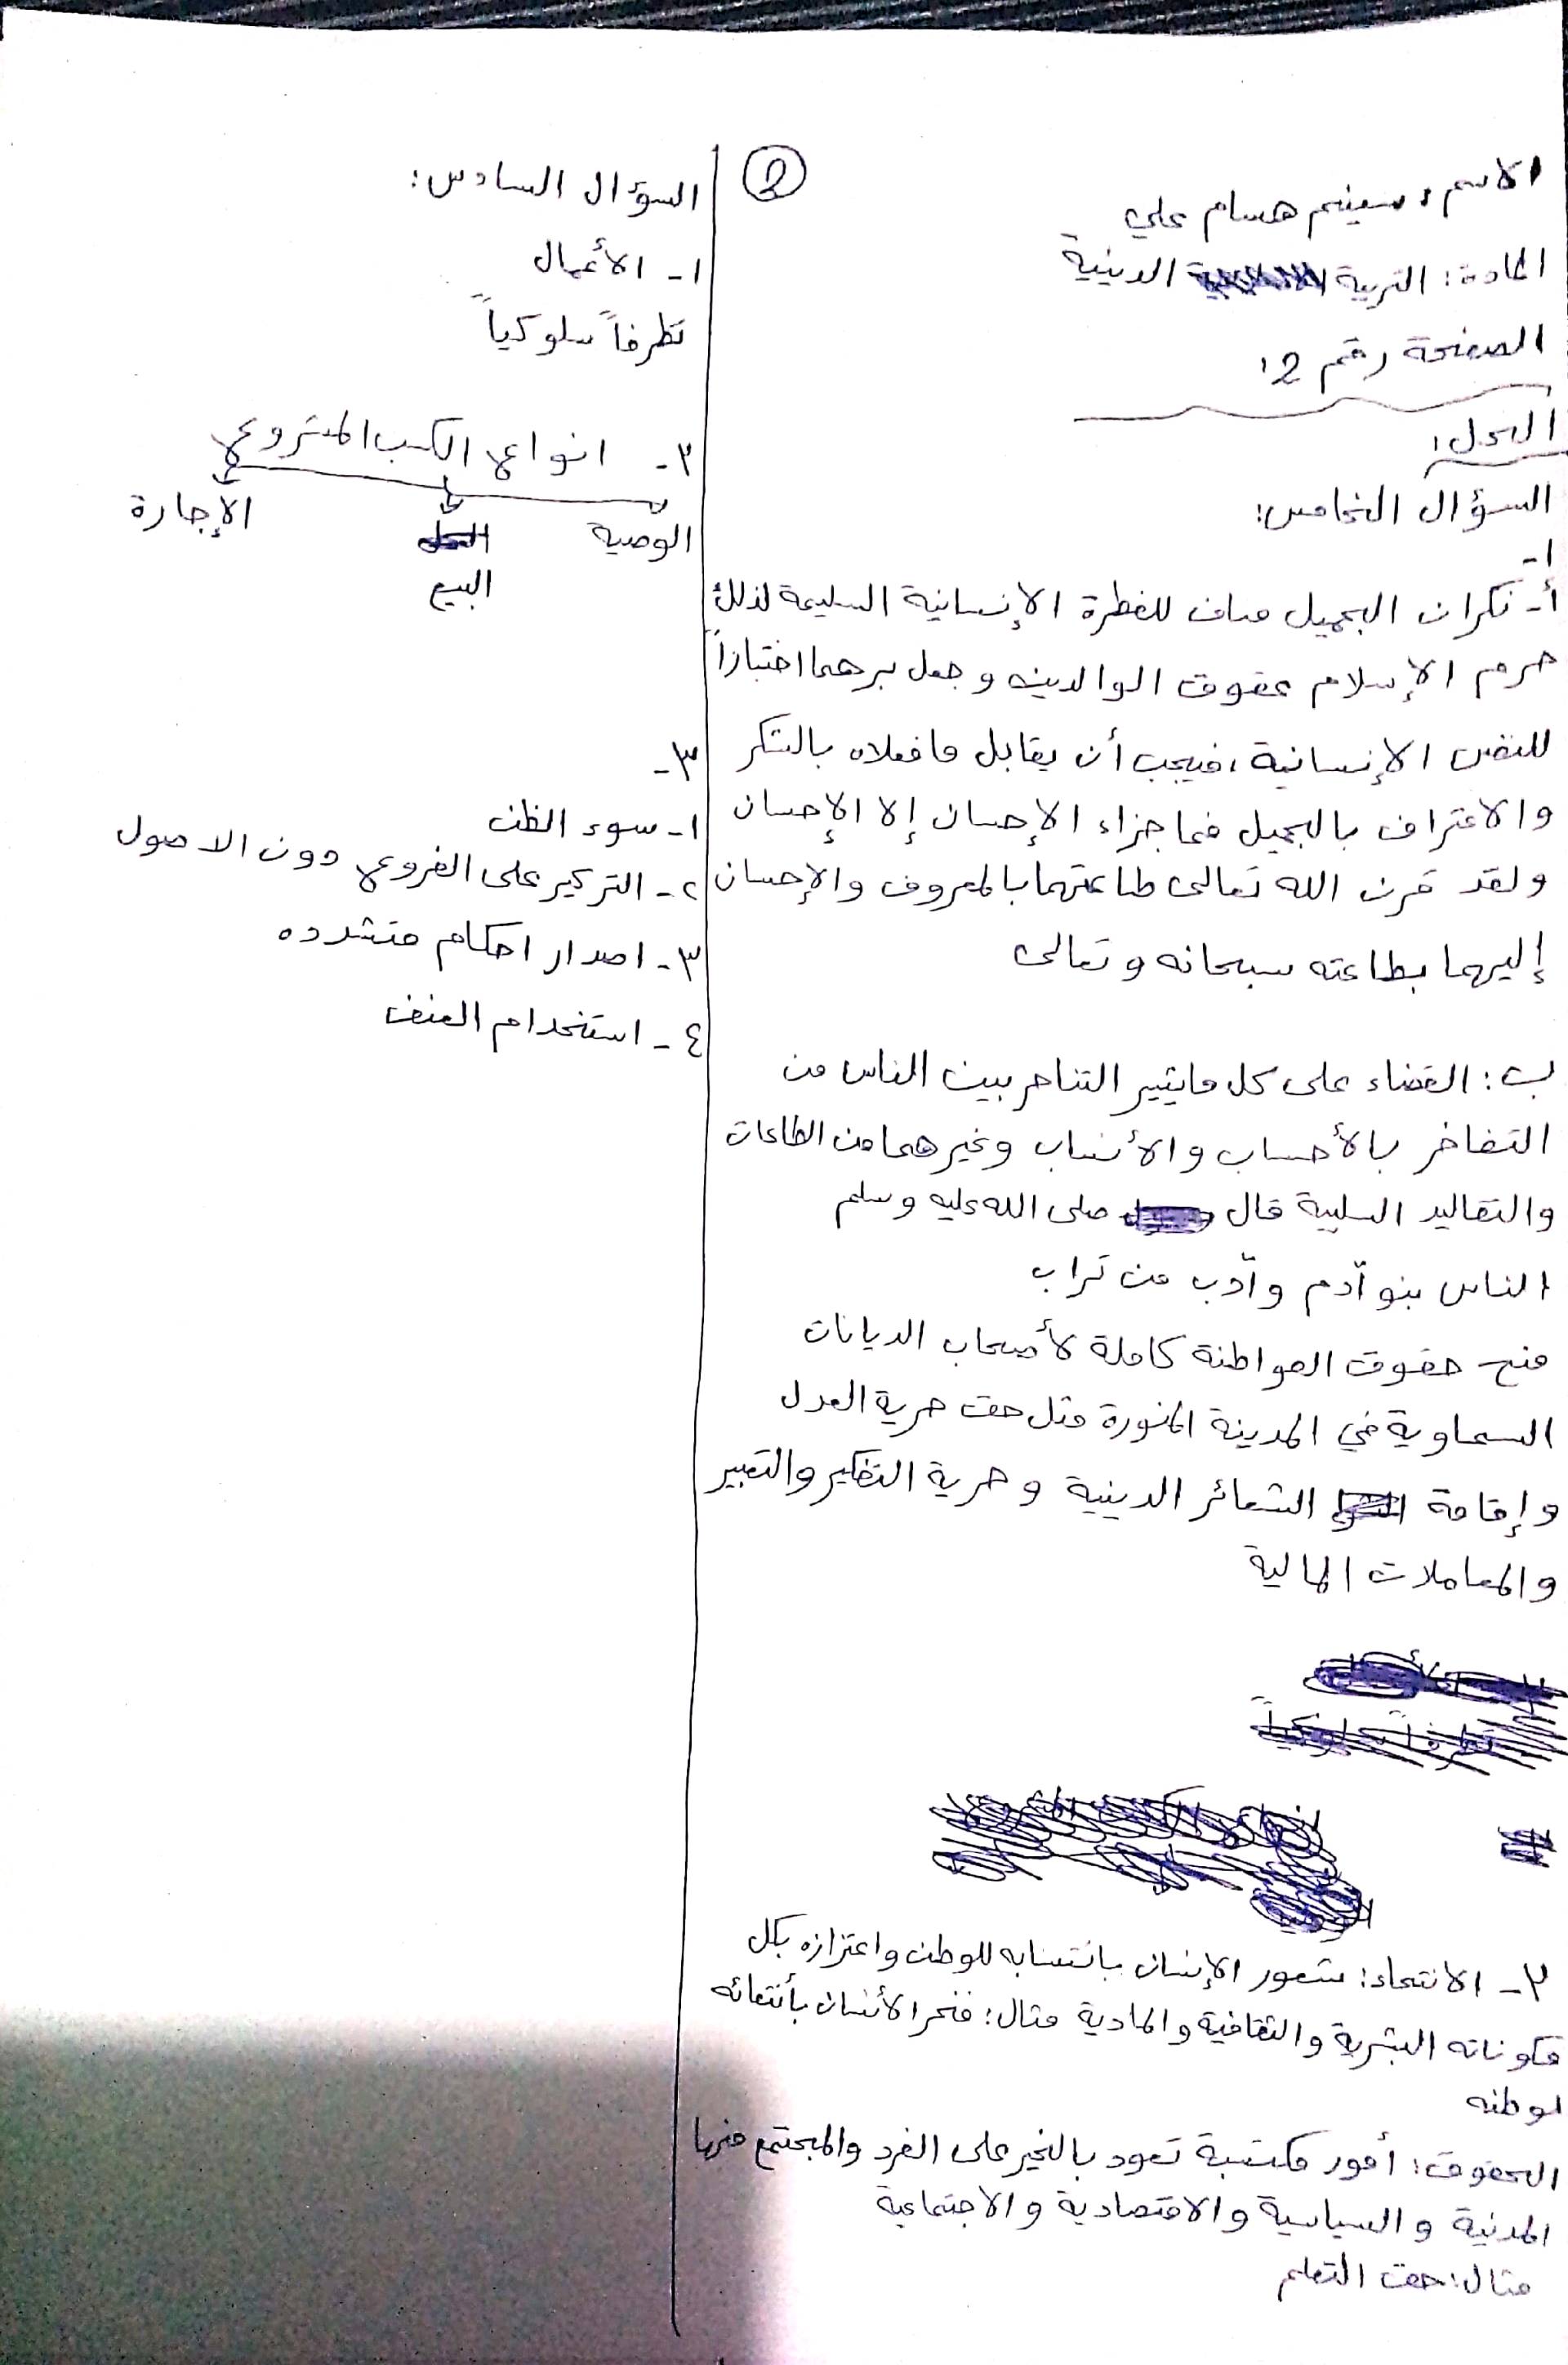 الاسم: سينم هسام علي
المادة: التربية الدينية
الصفحة رقم 2:
الحل:
السؤال الخامس:
1-
أ- نكران الجميل مناف للفطرة الإنسانية السليمة لذلك
حرم الإسلام عقوق الوالدين وجعل برهما اختباراً
للنفس الإنسانية، فيجب أن يقابل ما فعلاه بالشكر
والاعتراف بالجميل فما جزاء الإحسان إلا الإحسان
ولقد قرن الله تعالى طاعتهما بالمعروف والإحسان
إليهما بطاعته سبحانه وتعالى
ب: القضاء على كل ما يثير التناحر بين الناس من
التفاخر بالأحساب والأنساب وغيرهما من الطاعات
والتقاليد السلبية قال صلى الله عليه وسلم
الناس بنو آدم وآدب من تراب
منح حقوق المواطنة كاملة لأصحاب الديانات
السماوية في المدينة المنورة مثل حق حرية العدل
وإقامة الشعائر الدينية وحرية التفكير والتعبير
والمعاملات المالية
٢- الانتماء: شعور الإنسان بانتسابه للوطن واعتزازه بكل
مكوناته البشرية والثقافية والمادية مثال: فخر الأنسان بأنتمائه
لوطنه
الحقوق: أمور مكتسبة تعود بالخير على الفرد والمجتمع منها
المدنية والسياسية والاقتصادية والاجتماعية
مثال: حق التعلم
2
السؤال السادس:
1- الأعمال
تطرفاً سلوكياً
٢- انواع الكسب المشروع
الوصية البيع الإجارة
٣-
١- سوء الظن
٢- التركيز على الفروع دون الاصول
٣- اصدار احكام متشدده
٤- استخدام العنف